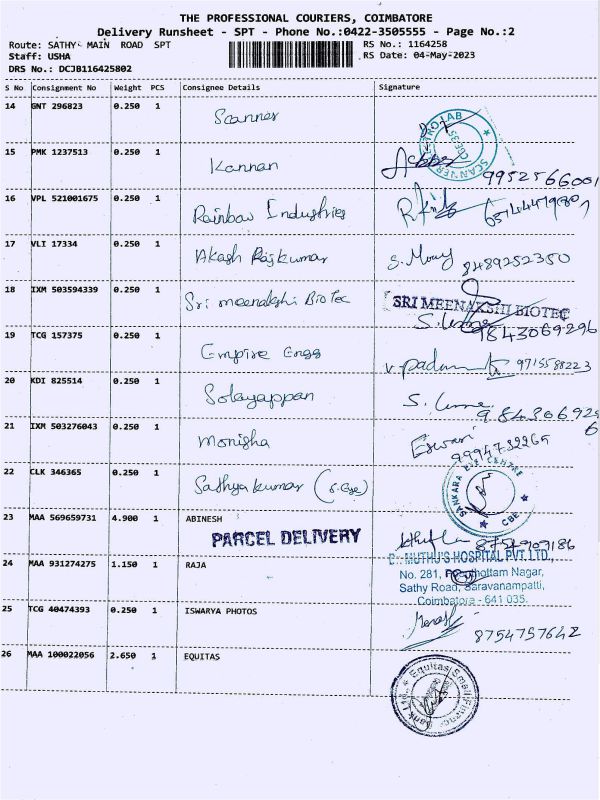 THE PROFESSIONAL COURIERS, COIMBATORE
Delivery Runsheet - SPT - Phone No.:0422-3505555 - Page No.:2
Route: SATHY MAIN ROAD SPT
RS No.: 1164258
Staff: USHA
RS Date: 04-May-2023
DRS No.: DCJB116425802
S No Consignment No Weight PCS Consignee Details Signature
14 GNT 296823 0.250 1 Scanner
15 PMK 1237513 0.250 1 Kannan 9952566001
16 VPL 521001675 0.250 1 Rainbow Industries
17 VLI 17334 0.250 1 Akash Rajkumar S. Mony 8489252350
18 IXM 503594339 0.250 1 Sri meenakshi BioTec SRI MEENAKSHI BIOTEC
9843069296
19 TCG 157375 0.250 1 Empire Engg 9715588223
20 KDI 825514 0.250 1 Solayappan 9843069296
21 IXM 503276043 0.250 1 Monisha Eswari
22 CLK 346365 0.250 1 Sathya kumar (S. Eye) SANKARA EYE CENTRE CBE
23 MAA 569659731 4.900 1 ABINESH
PARCEL DELIVERY 8754909186
24 MAA 931274275 1.150 1 RAJA MUTHU'S HOSPITAL PVT. LTD.,
No. 281, Nagar,
Sathy Road, Saravanampatti,
Coimbatore - 641 035.
25 TCG 40474393 0.250 1 ISWARYA PHOTOS 8754757642
26 MAA 100022056 2.650 1 EQUITAS Equitas Small Finance Bank Ltd.